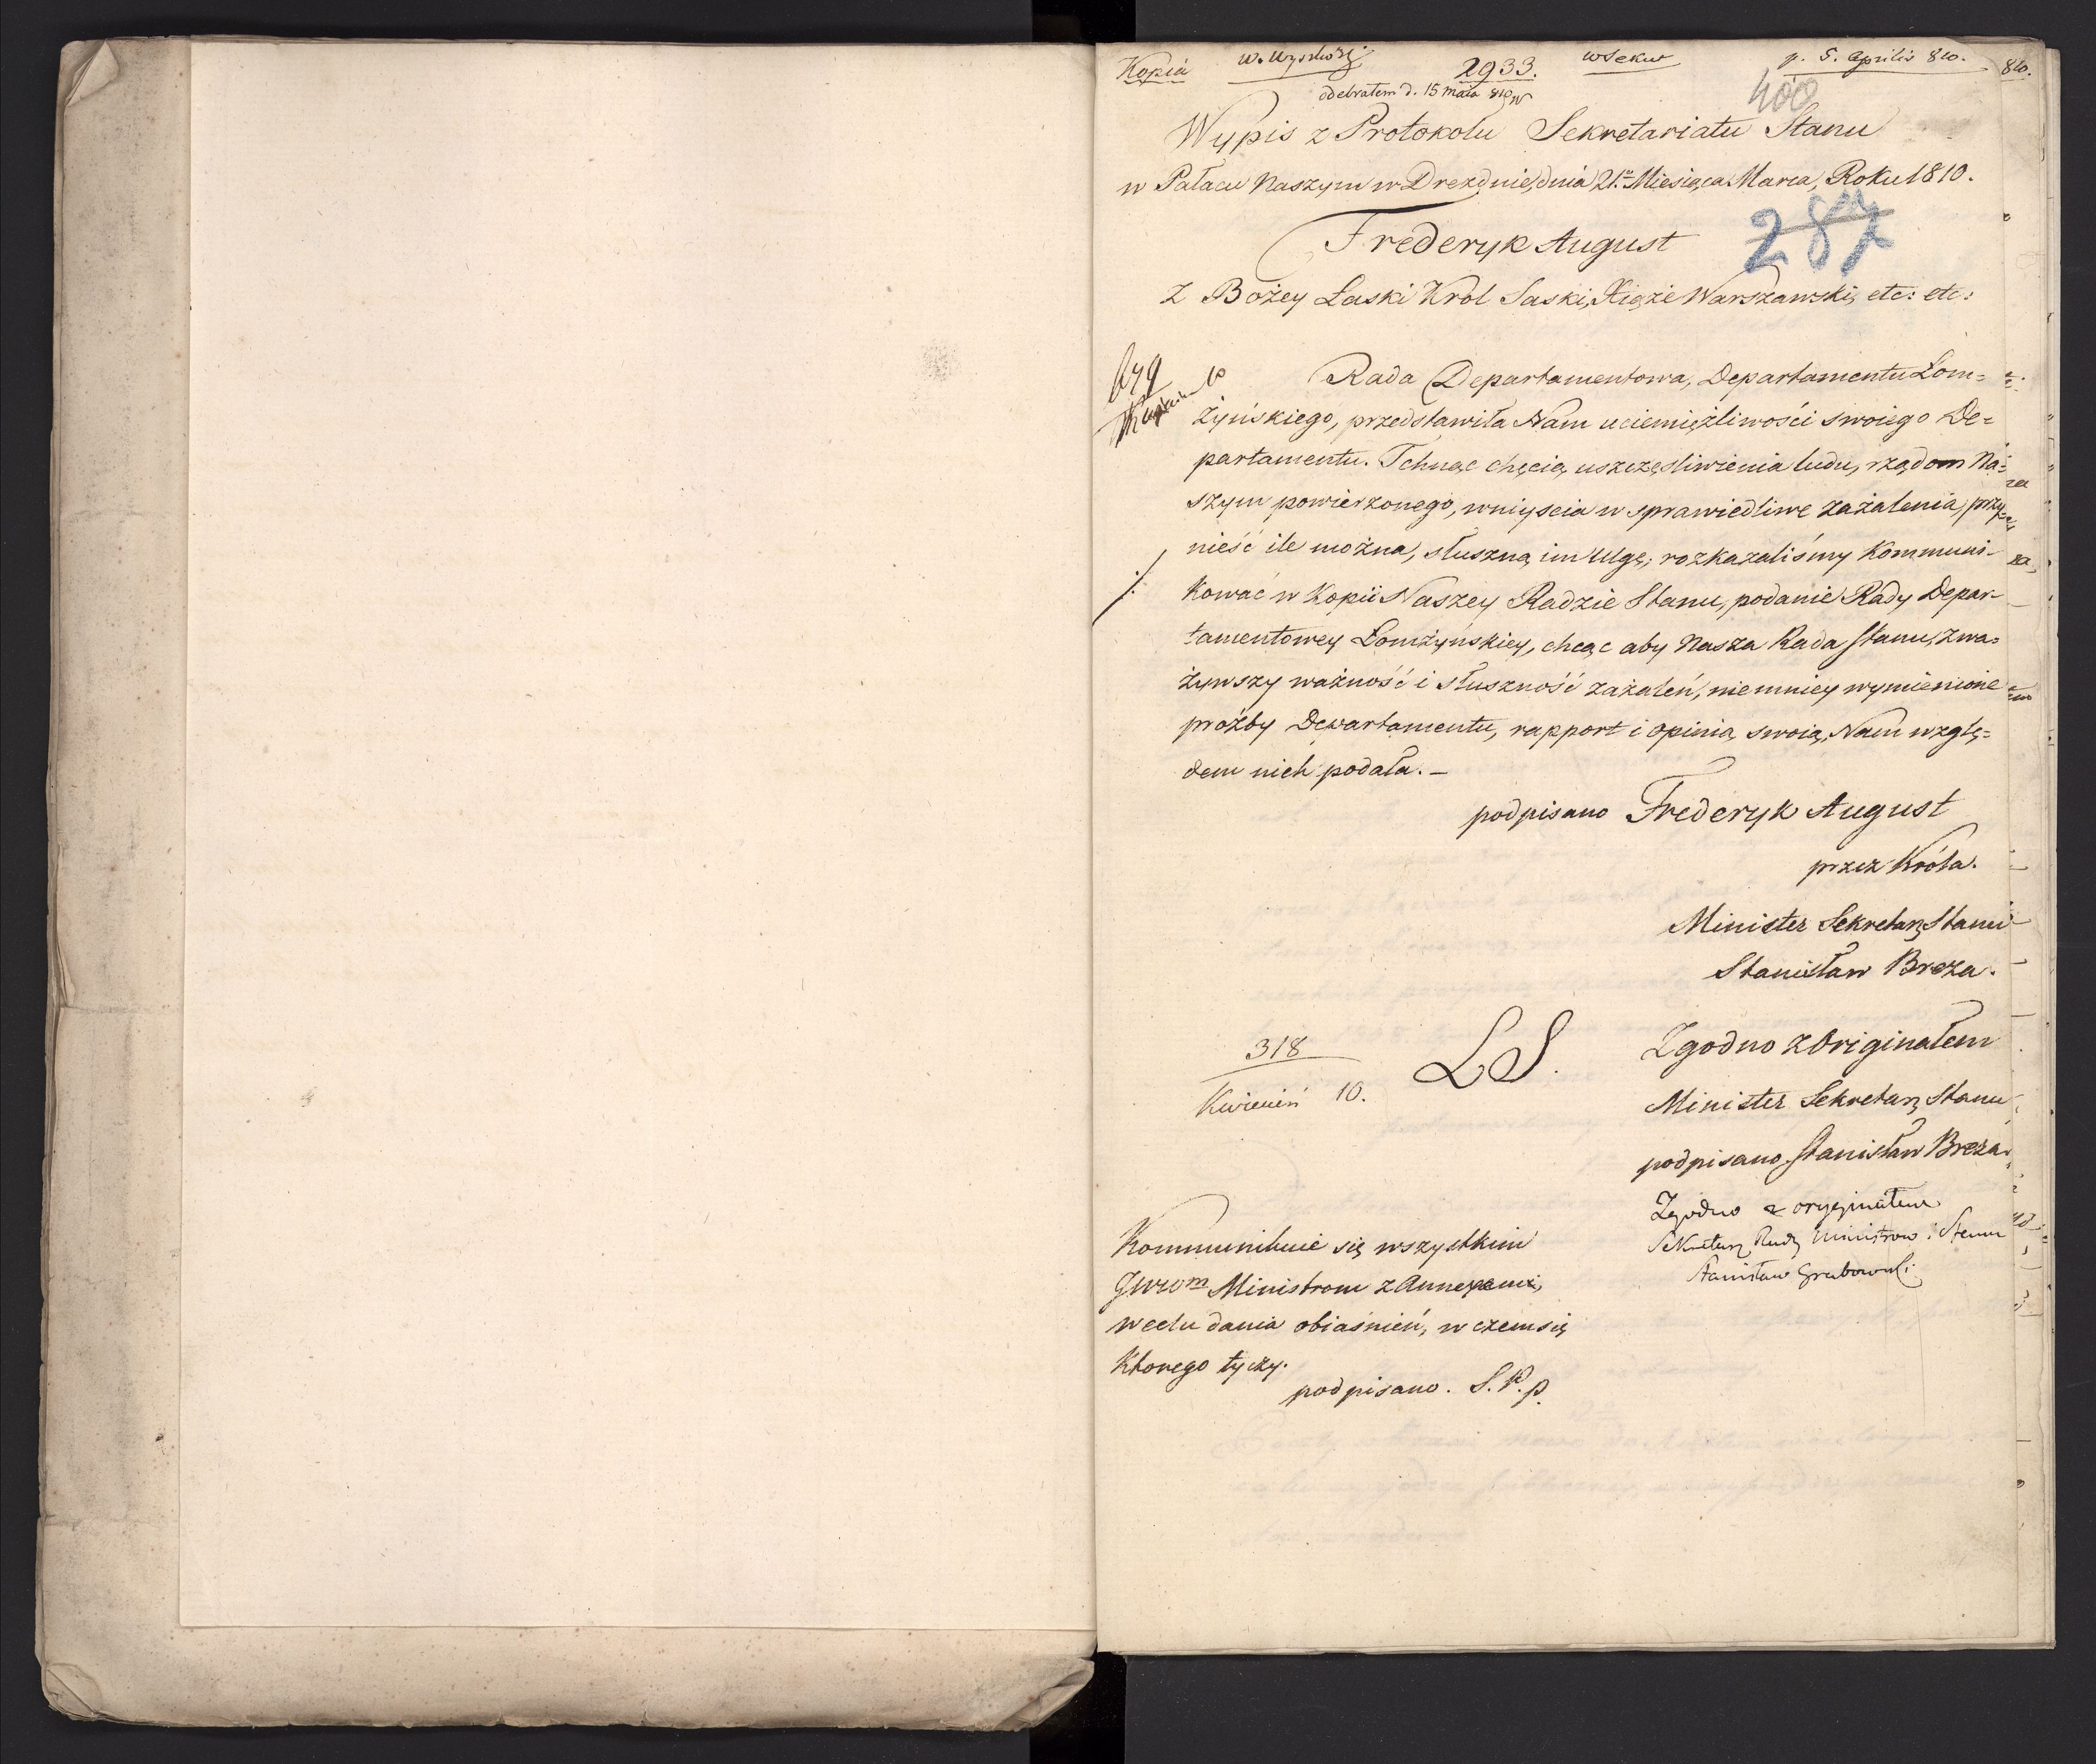 Kopia
2933.
p. 5. Aprilis 810.
odebrałem d. 15 Maia 810
400
Wypis z Protokołu Sekretariatu Stanu
w Pałacu Naszym w Dreznie, dnia 21.º Miesiąca Marca, Roku 1810.
287
Frederyk August
Z Bożey Łaski Krol Saski, Xiąże Warszawski, etc: etc:
Rada Departamentowa, Departamentu Łom=
żyńskiego, przedstawiła Nam uciemiężliwości swoiego De=
partamentu. Tchnąc chęcią uszczęsliwienia ludu, rządom Na=
szym powierzonego, wniyscia w sprawiedliwe zażalenia, przy=
nieść ile można, słuszną im Ulgę; rozkazaliśmy Kommuni-
kować w Kopii Naszey Radzie Stanu, podanie Rady Depar-
tamentowey Łomżyńskiey, chcąc aby Nasza Rada Stanu, zwa=
żywszy ważność i słuszność zażaleń, niemniey wymienione
prozby Departamentu, rapport i opinią swoią, Nam wzglę=
dem nich podała. –
podpisano Frederyk August
przez Króla.
Minister Sekretarz Stanu
Stanisław Breza.
318
Kwiecień 10.
LS.
Zgodno z Originałem
Minister Sekretarz Stanu
podpisano Stanisław Breza
Zgodno z oryginałem
Sekretarz Rady Ministrow i Stanu
Stanisław Grabowski
Kommunikuie się wszystkim
JWW^m Ministrom z Annexami,
wcelu dania obiaśnień, w czem się
Ktorego tyczy.
podpisano. S. P. p.